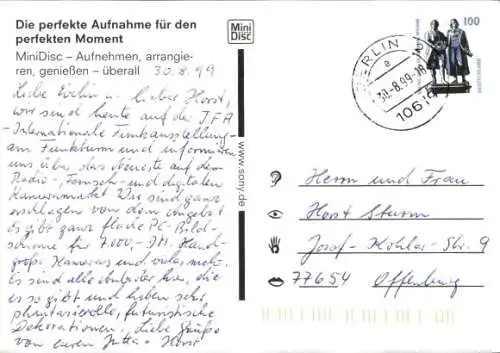 Die perfekte Aufnahme für den
perfekten Moment
MiniDisc – Aufnehmen, arrangie-
ren, genießen – überall 30.8.99
Liebe Evelin u. lieber Horst,
wir sind heute auf der IFA
-Internationale Funkausstellung-
am Funkturm und informieren
uns über das Neueste auf dem
Radio-, Fernseh- und digitalen
Kameramarkt. Wir sind ganz
erschlagen von dem Angebot.
Es gibt ganz flache PC-Bild-
schirme für 7.000,- DM. Hand-
große Kameras und vieles mehr.
Es sind alle Anbieter hier, die
es so gibt und haben sehr
phantasievolle, futuristische
Dekorationen. Liebe Grüße
von euren Jutta + Horst
Mini
Disc
www.sony.de
BERLIN
e
30.-8.99-18
10619
100
Herrn und Frau
Horst Sturm
Josef-Kohler-Str. 9
77654 Offenburg